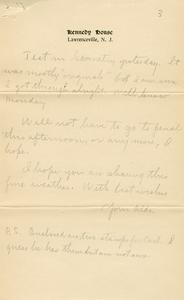 3
Kennedy House
Lawrenceville, N. J.
Test in Geometry yesterday. It
was mostly "originals" but I am sure
I got through alright. Will know
Monday.
Will not have to go to penal
this afternoon, or any more, I
hope.
I hope you are sharing this
fine weather. With best wishes
Your
P.S. Enclosed are two stamps for Carl. I
guess he has them but am not sure.